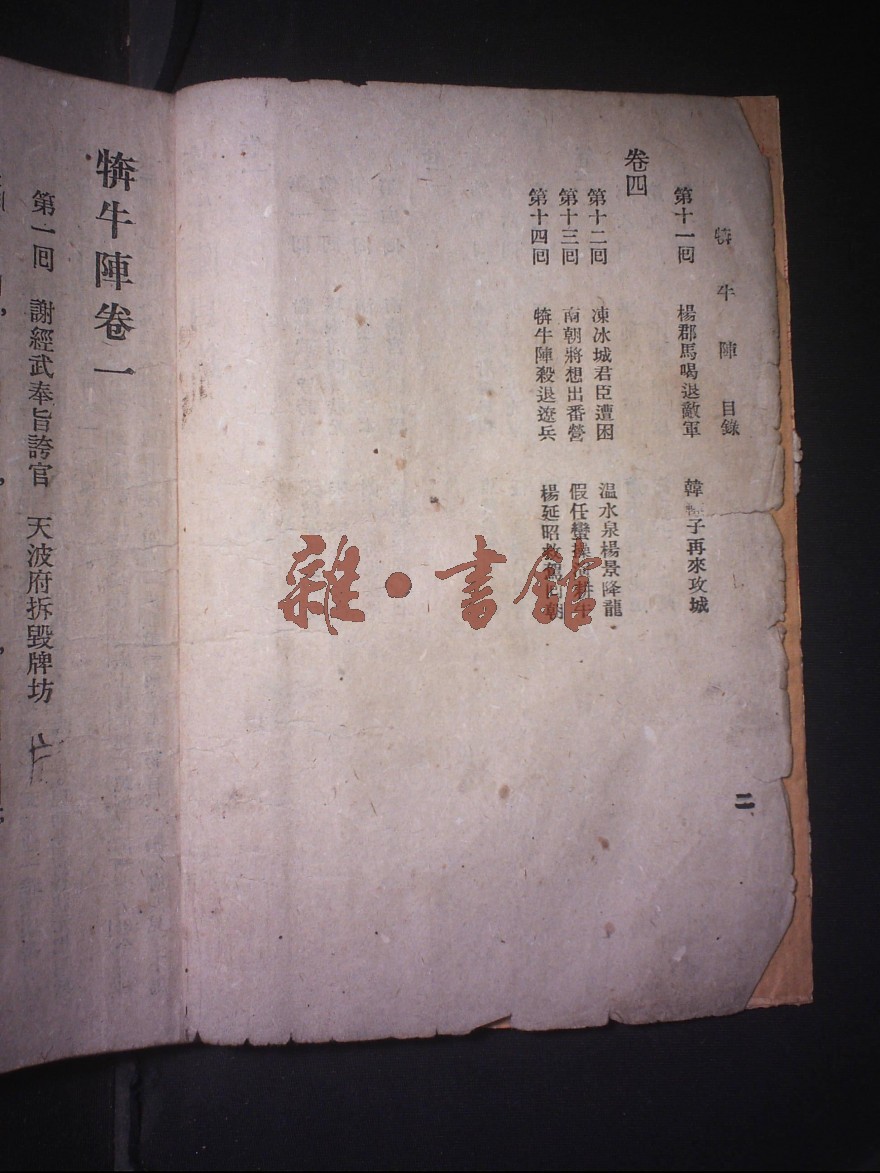 犇牛陣 目錄
第十一囘 楊郡馬喝退敵軍 韓 子再來攻城
卷四
第十二囘 凍冰城君臣遭困 温水泉楊景降龍
第十三囘 南朝將想出番營 假任蠻
第十四囘 犇牛陣殺退遼兵 楊延昭救駕囘朝
二
犇牛陣卷一
第一囘 謝經武奉旨誇官 天波府拆毀牌坊
雜·書館